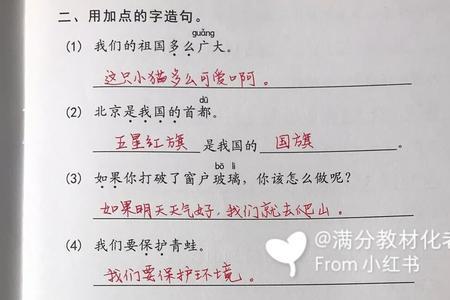 二、用加点的字造句。
guǎng
(1) 我们的祖国多么广大。
这只小猫多么可爱啊。
dū
(2) 北京是我国的首都。
五星红旗 是我国的 国旗 。
bō li
(3) 如果你打破了窗户玻璃，你该怎么做呢？
如果明天天气好，我们就去爬山。
(4) 我们要保护青蛙。
我们要保护环境。
@满分教材化老
From 小红书